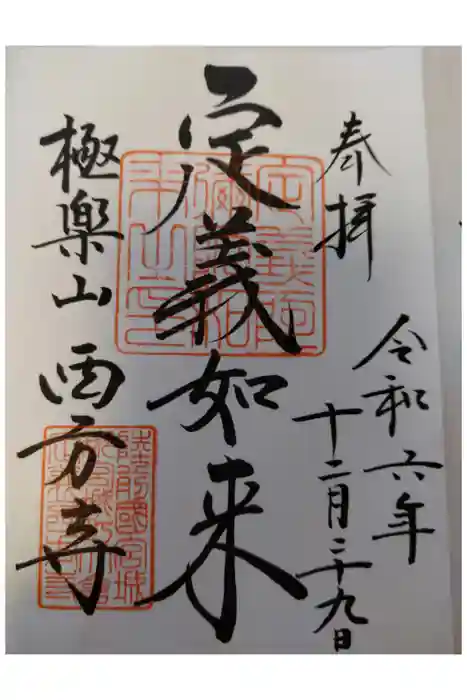 奉拝
令和六年
十二月二十九日
定義如来
極楽山 西方寺